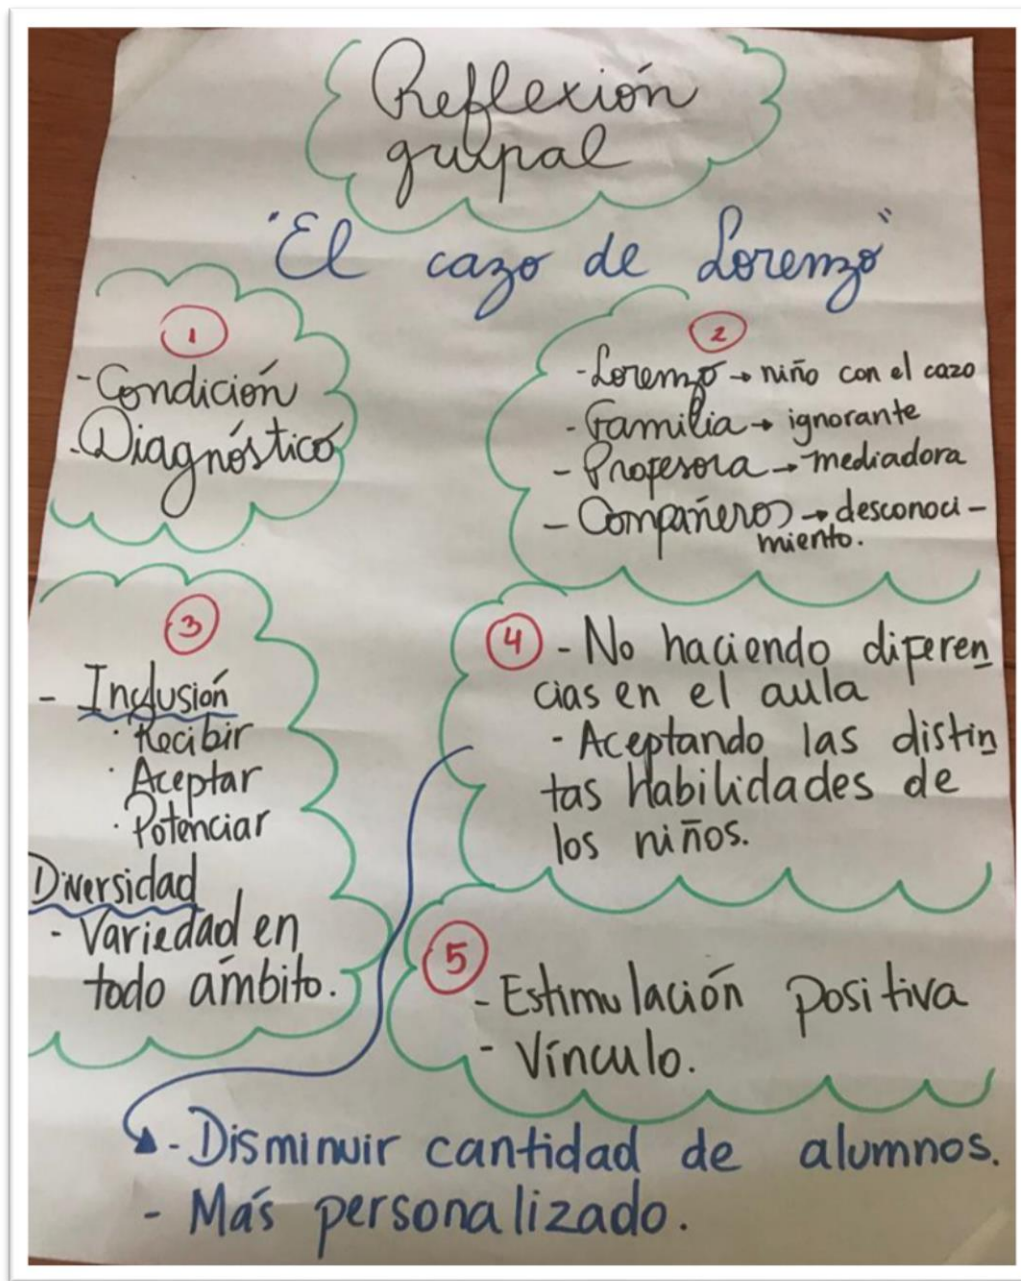 Reflexión
grupal
"El cazo de Lorenzo"
1
- Condición
- Diagnóstico
2
- Lorenzo → niño con el cazo
- Familia → ignorante
- Profesora → mediadora
- Compañeros → desconoci-
miento.
3
- Inclusión
· Recibir
· Aceptar
· Potenciar
Diversidad
- Variedad en
todo ámbito.
4 - No haciendo diferen
cias en el aula
- Aceptando las distin
tas habilidades de
los niños.
5
- Estimulación positiva
- Vínculo.
- Disminuir cantidad de alumnos.
- Más personalizado.